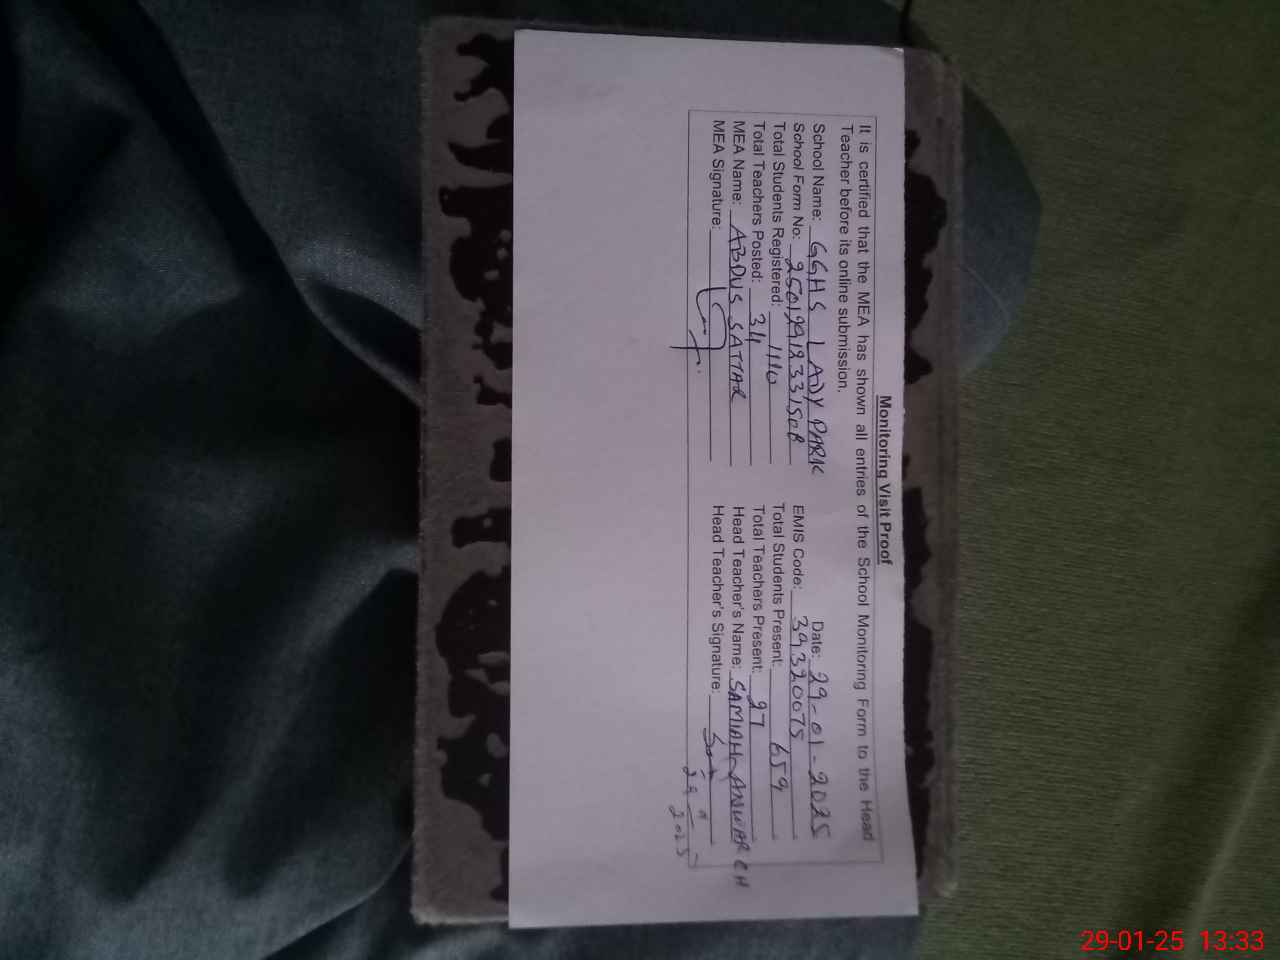 Monitoring Visit Proof
It is certified that the MEA has shown all entries of the School Monitoring Form to the Head
Teacher before its online submission.
School Name: GGHS LADY PARK Date: 29-01-2025
School Form No: EMIS Code: 39320075
Total Students Registered: 1110 Total Students Present: 659
Total Teachers Posted: 34 Total Teachers Present: 27
MEA Name: ABDUS SATTAR Head Teacher's Name: SAMIAH ANWAR CH
MEA Signature: Head Teacher's Signature:
29
2025
29-01-25 13:33